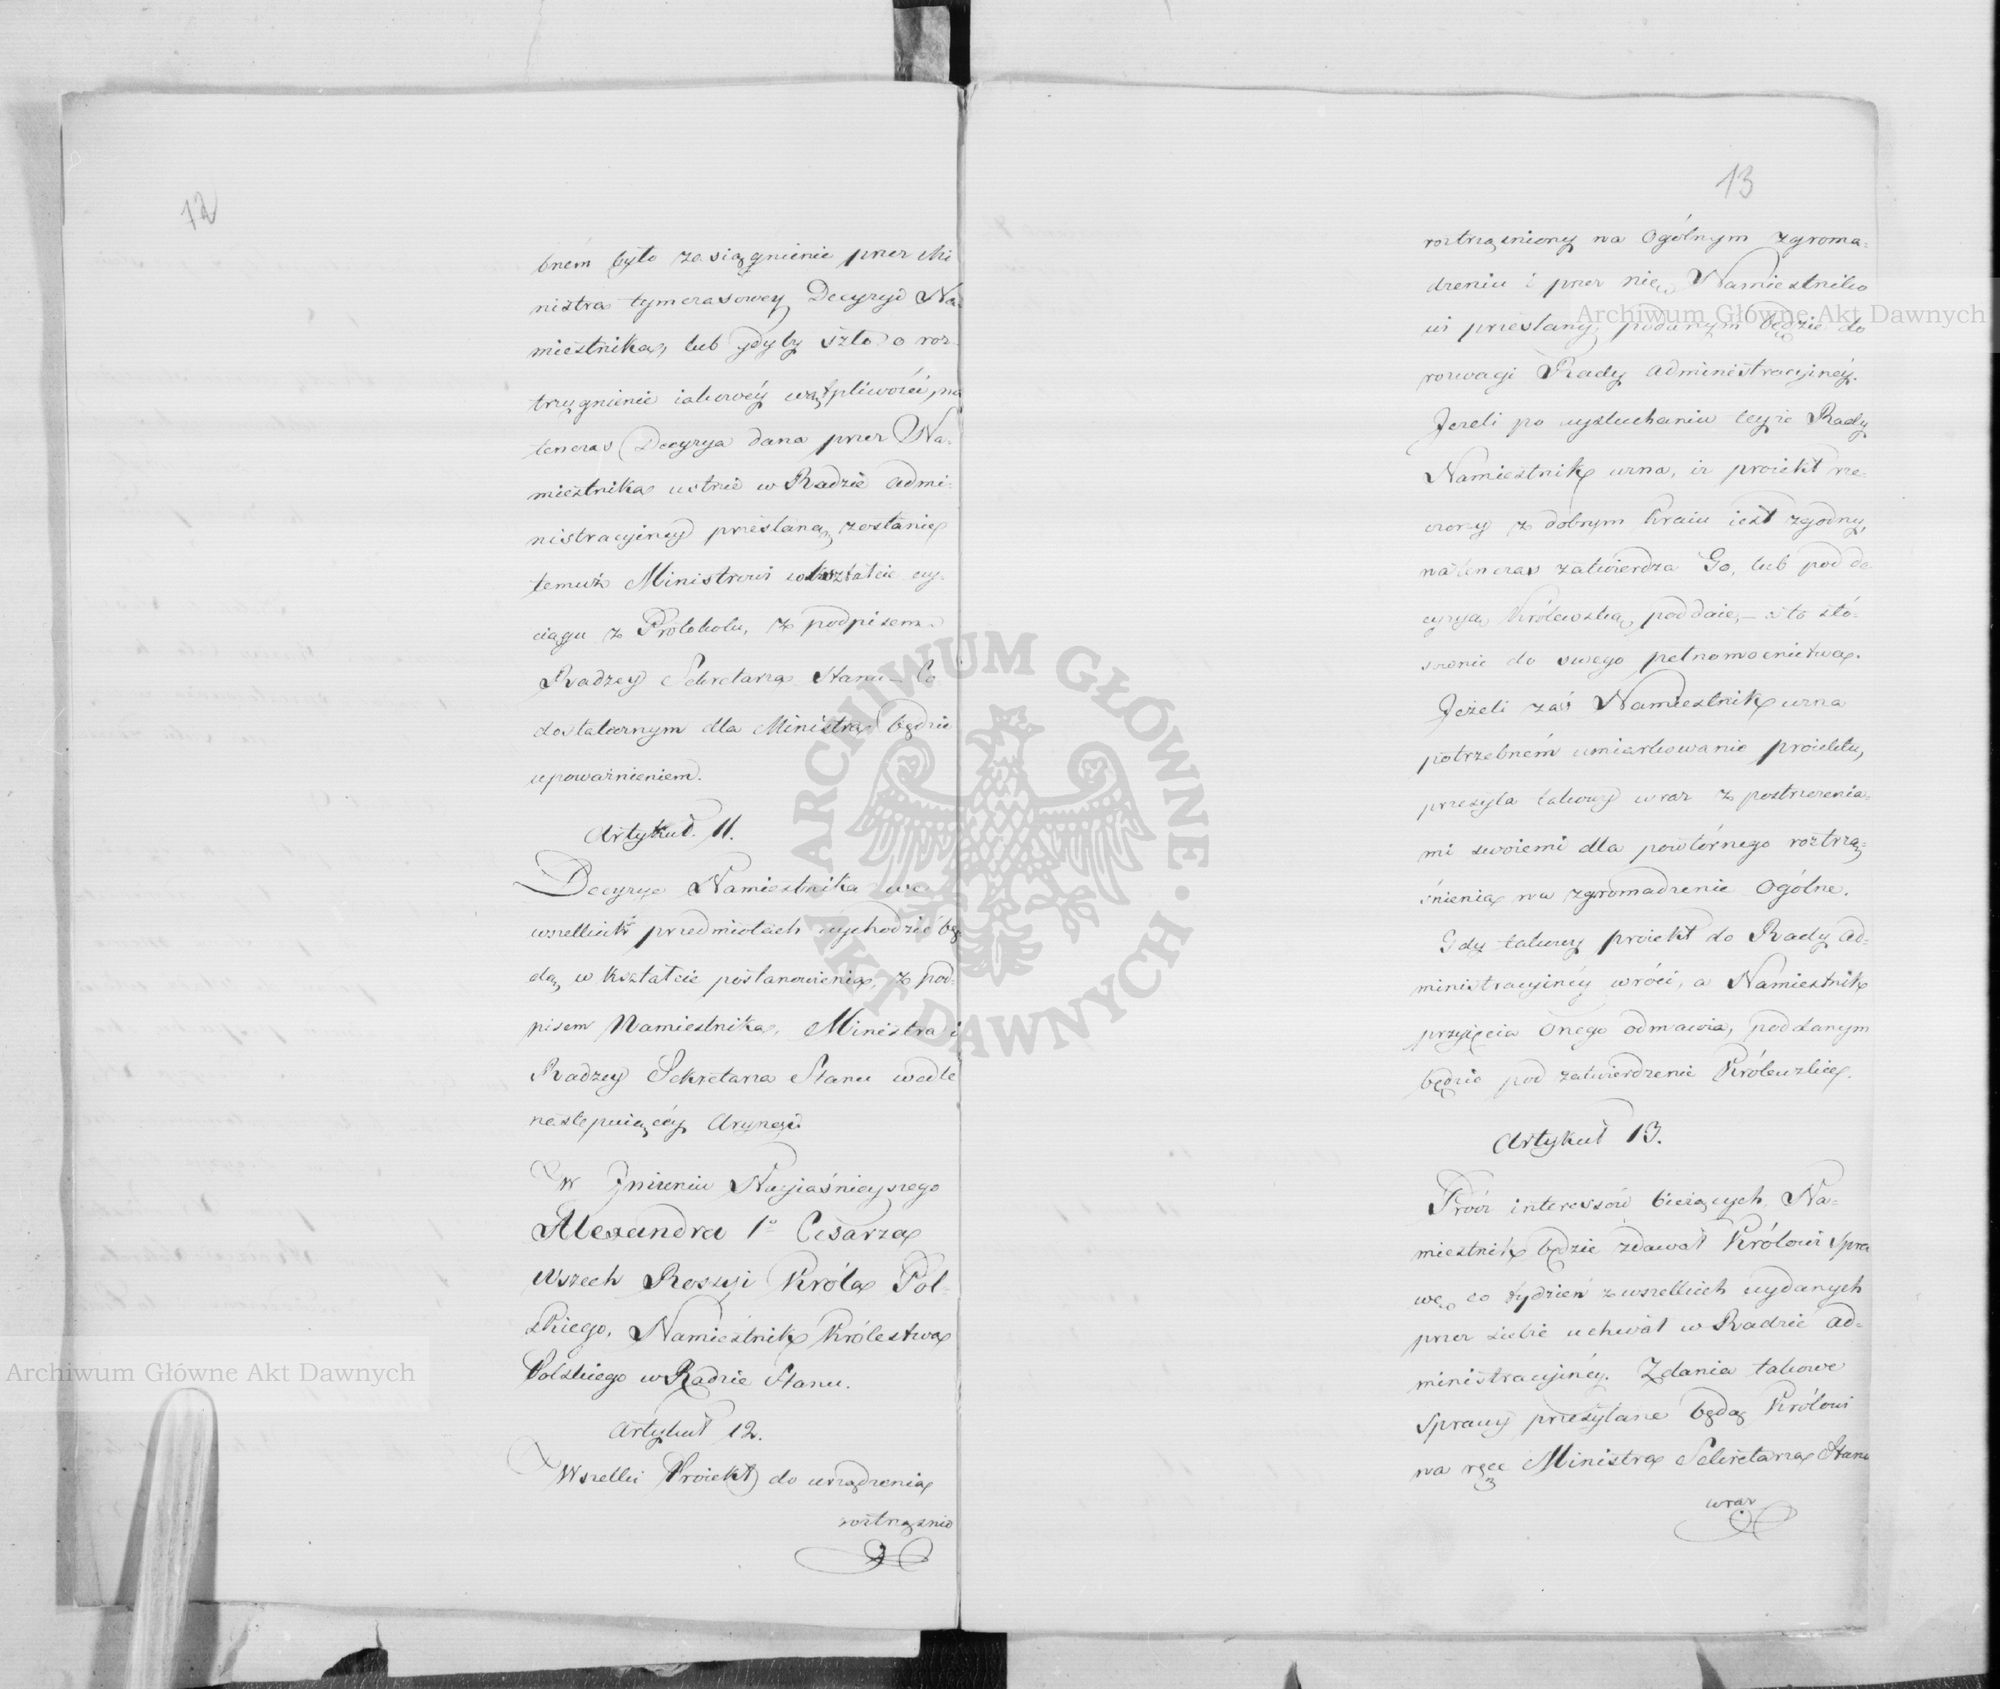 12
bném było zasiągnienie przez Mi
nistra tymczasowey Decyzyi Na
miestnika, lub gdyby szło o roz
trzygnienie iakowéy wątpliwości, na
tenczas Decyzya dana przez Na-
miestnika ustnie w Radzie Admi-
nistracyiney przesłaną zostanie
temuż Ministrowi w kształcie wy-
ciągu z Protokołu, z podpisem
Radzcy Sekretarza Stanu – Co
dostatecznym dla Ministra będzie
upoważnieniem.
Artykuł. 11.
Decyzye Namiestnika we
wszelkich przedmiotach wychodzić bę
dą, w kształcie postanowienia, z pod-
pisem Namiestnika, Ministra i
Radzcy Sekretarza Stanu wedle
następuiącéy
W Jmieniu Nayiaśnieyszego
Alexandra 1o Cesarza
Wszech Rossyi Króla Pol-
skiego, Namiestnik Królestwa
Polskiego w Radzie Stanu.
Artykuł 12.
Wszelki Proiekt do urządzenia
roztrząśnio
13
roztrząśniony na Ogólnym zgroma-
dzeniu i przez nie, Namiestniko
wi przesłany, podanym będzie do
rozwagi Rady Administracyinéy.
Jeżeli po wysłuchaniu teyże Rady
Namiestnik uzna, iż proiekt rze-
czony z dobrym Kraiu iest zgodny,
natenczas zatwierdza Go, lub pod de
cyzyą Królewską poddaie, – a to stó-
sownie do swego pełnomocnictwa.
Jeżeli zaś Namiestnik uzna
potrzebném umiarkowanie proiektu,
przesyła takowy wraz z postrzeżenia-
mi swoiemi dla powtórnego roztrzą-
śnienia na zgromadzenie Ogólne.
Gdy takowy proiekt do Rady Ad-
ministracyinéy wróci, a Namiestnik
przyięcia Onego odmawia, poddanym
będzie pod zatwierdzenie Królewskie.
Artykuł 13.
Prócz interessów bieżących, Na-
miestnik będzie zdawał Królowi Spra
wę co tydzień z wszelkich wydanych
przez siebie uchwał w Radzie Ad-
ministracyinéy. Zdania takowe
Sprawy przesyłane będą Królowi
na ręce Ministra Sekretarza Stanu
wraz
Archiwum Główne Akt Dawnych
Archiwum Główne Akt Dawnych
ARCHIWUM GŁÓWNE · AKT DAWNYCH ·